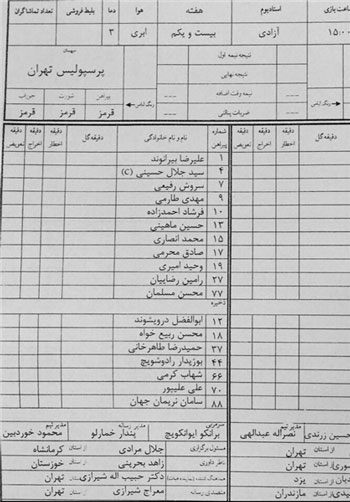 ساعت بازی استادیوم هفته هوا دما بلیط فروشی تعداد تماشاگران
۱۵:۰۰ آزادی بیست و یکم ابری ۳
نتیجه نیمه اول
نتیجه نهایی
وقت اضافه ---
ضربات پنالتی ---
میهمان
پرسپولیس تهران
رنگ لباس پیراهن شورت جوراب
قرمز قرمز قرمز
شماره پیراهن نام و نام خانوادگی دقیقه گل دقیقه اخطار دقیقه اخراج دقیقه تعویض
۱ علیرضا بیرانوند
۴ سید جلال حسینی (C)
۷ سروش رفیعی
۹ مهدی طارمی
۱۰ فرشاد احمدزاده
۱۳ حسین ماهینی
۱۵ محمد انصاری
۱۷ صادق محرمی
۱۹ وحید امیری
۲۷ رامین رضاییان
۷۷ محسن مسلمان
ذخیره
۱۲ ابوالفضل درویشوند
۱۸ محسن ربیع خواه
۳۷ حمیدرضا طاهرخانی
۴۴ بوزیدار رادوشویچ
۶۶ شهاب کرمی
۷۰ علی علیپور
۸۸ سامان نریمان جهان
حسین زرندی مدیر تیم نصراله عبدالهی سرمربی برانکو ایوانکوویچ مدیر رسانه پندار خمارلو مدیر تیم محمود خوردبین
از استان تهران مسئول برگزاری جلال مرادی از استان کرمانشاه
از استان تهران ناظر داوری زاهد بحرینی از استان خوزستان
از استان یزد دکتر حبیب اله شیرازی از استان تهران
از استان مازندران متصدی رسانه معراج شیرازی از استان تهران